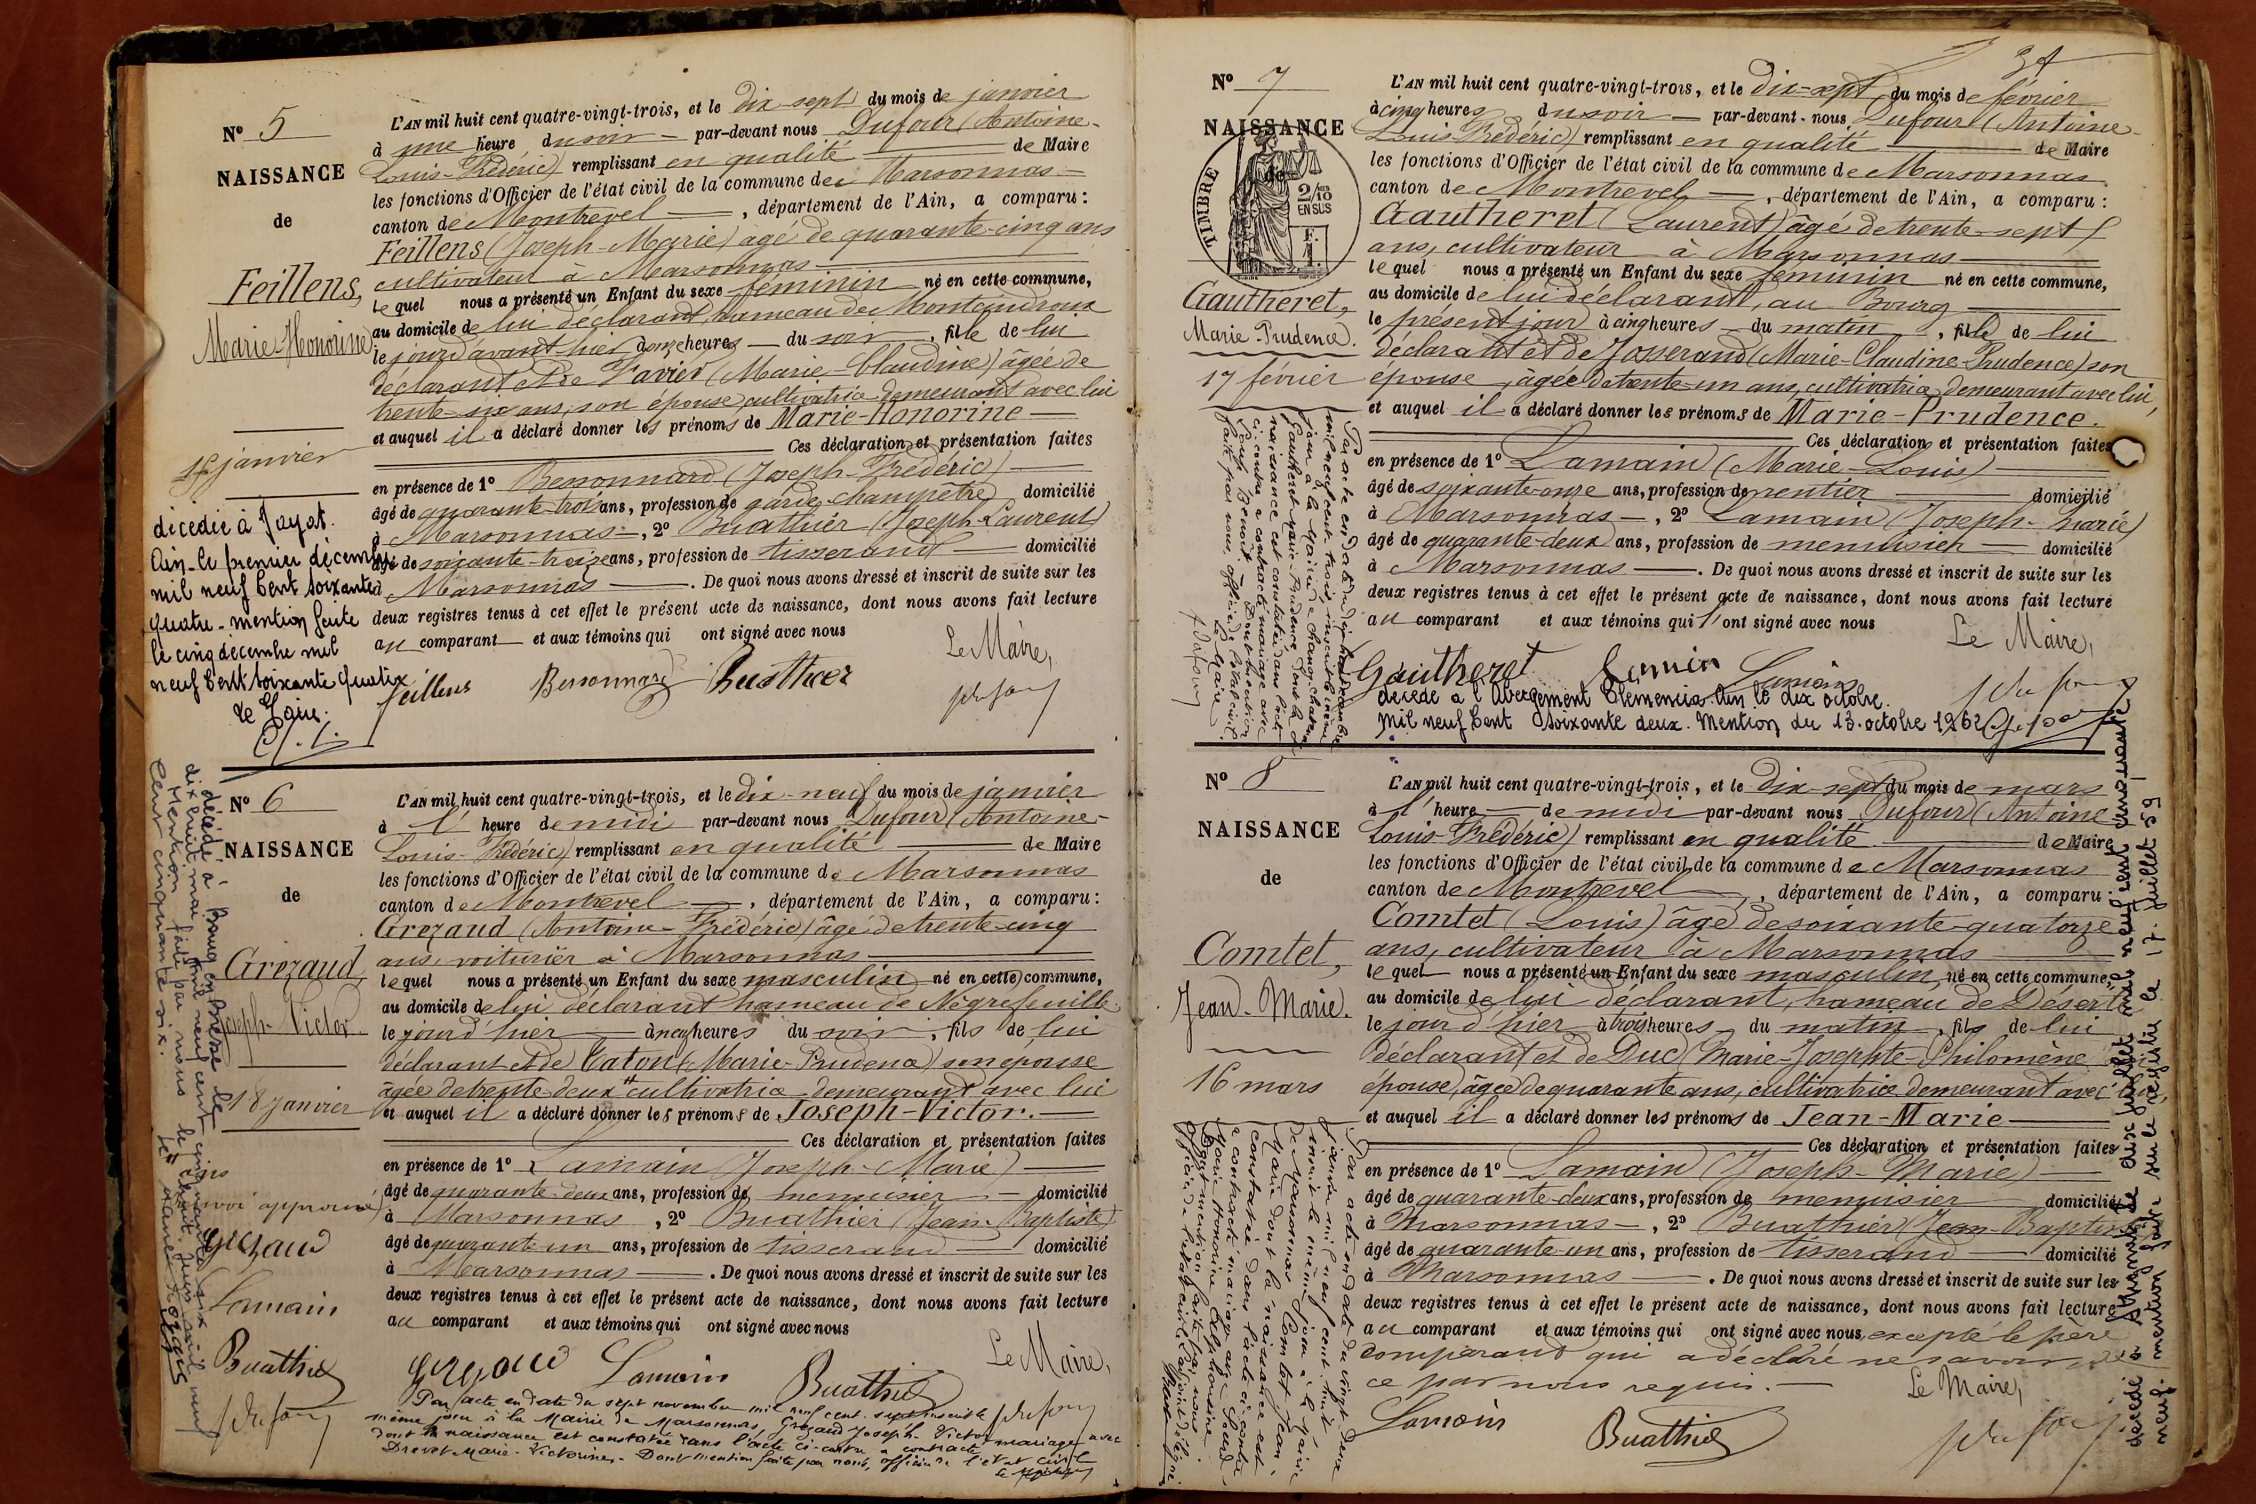 N° 5
NAISSANCE
de
Feillens,
Marie-Honorine.
15 janvier
décédée à Jayat.
Ain - le premier décembre
mil neuf cent soixante
quatre - mention faite
le cinq décembre mil
neuf cent soixante quatre
Le Maire.
L'AN mil huit cent quatre-vingt-trois, et le dix-sept du mois de janvier
à une heure du soir — par-devant nous Dufour (Antoine-
Louis-Frédéric) remplissant en qualité — de Maire
les fonctions d'Officier de l'état civil de la commune de Marsonnas —
canton de Montrevel —, département de l'Ain, a comparu :
Feillens (Joseph-Marie) âgé de quarante-cinq ans
cultivateur à Marsonnas —
lequel nous a présenté un Enfant du sexe féminin né en cette commune,
au domicile de lui déclarant, hameau de
le jour d'avant hier heures — du soir, fille de lui
déclarant et de (Marie-Claudine) âgée de
trente-six ans, son épouse, cultivatrice demeurant avec lui
et auquel il a déclaré donner les prénoms de Marie-Honorine —
Ces déclaration et présentation faites
en présence de 1° Bessonnard (Joseph-Frédéric) —
âgé de quarante-trois ans, profession de garde-champêtre domicilié
à Marsonnas —, 2° Buathier (Joseph-Laurent)
âgé de soixante-treize ans, profession de tisserand — domicilié
à Marsonnas —. De quoi nous avons dressé et inscrit de suite sur les
deux registres tenus à cet effet le présent acte de naissance, dont nous avons fait lecture
au comparant — et aux témoins qui ont signé avec nous
Le Maire,
feillens Bessonnard Buathier
N° 6
NAISSANCE
de
Grezaud,
Joseph-Victor.
18 janvier
renvoi approuvé
Grezaud
Lamain
Buathier
décédé à Bourg en Bresse le
dix huit mai mil neuf cent cinquante six
Mention faite par nous le huit juin mil neuf
cent cinquante six.
L'AN mil huit cent quatre-vingt-trois, et le dix-neuf du mois de janvier
à l' heure de midi par-devant nous Dufour (Antoine-
Louis-Frédéric) remplissant en qualité — de Maire
les fonctions d'Officier de l'état civil de la commune de Marsonnas
canton de Montrevel —, département de l'Ain, a comparu :
Grezaud (Antoine-Frédéric) âgé de trente-cinq
ans, voiturier à Marsonnas —
lequel nous a présenté un Enfant du sexe masculin né en cette commune,
au domicile de lui déclarant hameau de
le jour d'hier — à cinq heures du soir, fils de lui
déclarant et de Caton (Marie-Prudence) son épouse
âgée de trente-deux cultivatrice demeurant avec lui
et auquel il a déclaré donner les prénoms de Joseph-Victor. —
Ces déclaration et présentation faites
en présence de 1° Lamain (Joseph-Marie) —
âgé de quarante-deux ans, profession de menuisier — domicilié
à Marsonnas, 2° Buathier (Jean-Baptiste)
âgé de quarante-un ans, profession de tisserand — domicilié
à Marsonnas —. De quoi nous avons dressé et inscrit de suite sur les
deux registres tenus à cet effet le présent acte de naissance, dont nous avons fait lecture
au comparant et aux témoins qui ont signé avec nous
Le Maire,
Grezaud Lamain Buathier
Par acte en date du sept novembre mil neuf cent sept inscrit le
même jour à la Mairie de Marsonnas, Grezaud Joseph-Victor
dont la naissance est constatée dans l'acte ci-contre a contracté mariage avec
Drevet Marie-Victorine. Dont mention faite par nous, officier de l'état civil
N° 7
NAISSANCE
de
TIMBRE
2/10 EN SUS
Gautheret,
Marie-Prudence.
17 février
Par acte en date du
mil neuf cent trois inscrit le même
jour à la Mairie de
Gautheret Marie-Prudence dont la
naissance est constatée dans l'acte
ci-contre a contracté mariage avec
Dont mention
faite par nous, officier de l'état civil.
Le Maire,
L'AN mil huit cent quatre-vingt-trois, et le dix-sept du mois de février
à cinq heures du soir — par-devant-nous Dufour (Antoine-
Louis-Frédéric) remplissant en qualité — de Maire
les fonctions d'Officier de l'état civil de la commune de Marsonnas
canton de Montrevel —, département de l'Ain, a comparu :
Gautheret (Laurent) âgé de trente-sept
ans, cultivateur à Marsonnas —
lequel nous a présenté un Enfant du sexe féminin né en cette commune,
au domicile de lui déclarant, au Bourg —
le présent jour à cinq heures — du matin, fille de lui
déclarant et de Josserand (Marie-Claudine-Prudence) son
épouse, âgée de trente-un ans, cultivatrice demeurant avec lui,
et auquel il a déclaré donner les prénoms de Marie-Prudence.
Ces déclaration et présentation faites
en présence de 1° Lamain (Marie-Louis) —
âgé de soixante-onze ans, profession de rentier — domicilié
à Marsonnas —, 2° Lamain (Joseph-Marie)
âgé de quarante-deux ans, profession de menuisier — domicilié
à Marsonnas —. De quoi nous avons dressé et inscrit de suite sur les
deux registres tenus à cet effet le présent acte de naissance, dont nous avons fait lecture
au comparant et aux témoins qui l'ont signé avec nous
Le Maire,
Gautheret Lamain Lamain
décédé à l'Abergement Clemencia Ain le dix octobre.
mil neuf cent soixante deux. Mention du 13 octobre 1962
N° 8
NAISSANCE
de
Comtet,
Jean-Marie.
16 mars
Par acte en date du vingt-deux
janvier mil neuf cent huit
inscrit le même jour à la Mairie
de Marsonnas Comtet Jean-
Marie dont la naissance est
constatée dans l'acte ci-contre
a contracté mariage avec
Marie Honorine Alphonsine.
Dont mention faite par nous
officier de l'état civil
L'AN mil huit cent quatre-vingt-trois, et le dix-sept du mois de mars
à l' heure — de midi par-devant nous Dufour (Antoine-
Louis-Frédéric) remplissant en qualité — de Maire
les fonctions d'Officier de l'état civil de la commune de Marsonnas
canton de Montrevel —, département de l'Ain, a comparu :
Comtet (Louis) âgé de soixante-quatorze
ans, cultivateur à Marsonnas —
lequel — nous a présenté un Enfant du sexe masculin, né en cette commune,
au domicile de lui déclarant, hameau de Désert
le jour d'hier à trois heures — du matin, fils de lui
déclarant et de Duc (Marie-Josephte-Philomène
épouse, âgée de quarante ans, cultivatrice demeurant avec lui,
et auquel il a déclaré donner les prénoms de Jean-Marie —
Ces déclaration et présentation faites
en présence de 1° Lamain (Joseph-Marie) —
âgé de quarante-deux ans, profession de menuisier — domicilié
à Marsonnas —, 2° Buathier (Jean-Baptiste)
âgé de quarante-un ans, profession de tisserand — domicilié
à Marsonnas —. De quoi nous avons dressé et inscrit de suite sur les
deux registres tenus à cet effet le présent acte de naissance, dont nous avons fait lecture
au comparant et aux témoins qui ont signé avec nous, excepté le père
comparant qui a déclaré ne savoir
ce par nous requis. —
Le Maire,
Lamain Buathier
décédé à le dix juillet mil neuf cent cinquante
neuf. mention faite sur le registre le 17 juillet 59